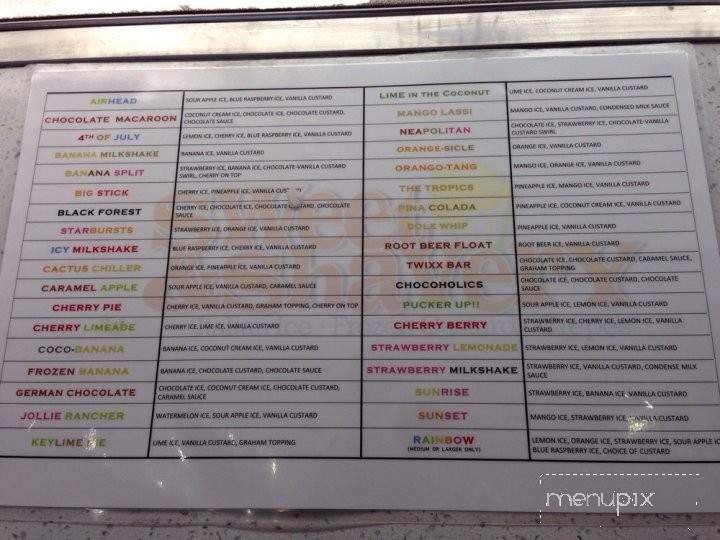 AIRHEAD
SOUR APPLE ICE, BLUE RASPBERRY ICE, VANILLA CUSTARD
CHOCOLATE MACAROON
COCONUT CREAM ICE, CHOCOLATE ICE, CHOCOLATE CUSTARD,
CHOCOLATE SAUCE
4TH OF JULY
LEMON ICE, CHERRY ICE, BLUE RASPBERRY ICE, VANILLA CUSTARD
BANANA MILKSHAKE
BANANA ICE, VANILLA CUSTARD
BANANA SPLIT
STRAWBERRY ICE, BANANA ICE, CHOCOLATE-VANILLA CUSTARD
SWIRL, CHERRY ON TOP
BIG STICK
CHERRY ICE, PINEAPPLE ICE, VANILLA
BLACK FOREST
CHERRY ICE, CHOCOLATE ICE, CHOCOLATE CUSTARD, CHOCOLATE
SAUCE
STARBURSTS
STRAWBERRY ICE, ORANGE ICE, VANILLA CUSTARD
ICY MILKSHAKE
BLUE RASPBERRY ICE, CHERRY ICE, VANILLA CUSTARD
CACTUS CHILLER
ORANGE ICE, PINEAPPLE ICE, VANILLA CUSTARD
CARAMEL APPLE
SOUR APPLE ICE, VANILLA CUSTARD, CARAMEL SAUCE
CHERRY PIE
CHERRY ICE, VANILLA CUSTARD, GRAHAM TOPPING, CHERRY ON TOP
CHERRY LIMEADE
CHERRY ICE, LIME ICE, VANILLA CUSTARD
COCO-BANANA
BANANA ICE, COCONUT CREAM ICE, VANILLA CUSTARD
FROZEN BANANA
BANANA ICE, CHOCOLATE CUSTARD, CHOCOLATE SAUCE
GERMAN CHOCOLATE
CHOCOLATE ICE, COCONUT CREAM ICE, CHOCOLATE CUSTARD,
CARAMEL SAUCE
JOLLIE RANCHER
WATERMELON ICE, SOUR APPLE ICE, VANILLA CUSTARD
KEYLIME PIE
LIME ICE, VANILLA CUSTARD, GRAHAM TOPPING
LIME IN THE COCONUT
LIME ICE, COCONUT CREAM ICE, VANILLA CUSTARD
MANGO LASSI
MANGO ICE, VANILLA CUSTARD, CONDENSED MILK SAUCE
NEAPOLITAN
CHOCOLATE ICE, STRAWBERRY ICE, CHOCOLATE-VANILLA
CUSTARD SWIRL
ORANGE-SICLE
ORANGE ICE, VANILLA CUSTARD
ORANGO-TANG
MANGO ICE, ORANGE ICE, VANILLA CUSTARD
THE TROPICS
PINEAPPLE ICE, MANGO ICE, VANILLA CUSTARD
PINA COLADA
PINEAPPLE ICE, COCONUT CREAM ICE, VANILLA CUSTARD
DOLE WHIP
PINEAPPLE ICE, VANILLA CUSTARD
ROOT BEER FLOAT
ROOT BEER ICE, VANILLA CUSTARD
TWIXX BAR
CHOCOLATE ICE, CHOCOLATE CUSTARD, CARAMEL SAUCE,
GRAHAM TOPPING
CHOCOHOLICS
CHOCOLATE ICE, CHOCOLATE CUSTARD, CHOCOLATE
SAUCE
PUCKER UP!!
SOUR APPLE ICE, LEMON ICE, VANILLA CUSTARD
CHERRY BERRY
STRAWBERRY ICE, CHERRY ICE, LEMON ICE, VANILLA
CUSTARD
STRAWBERRY LEMONADE
STRAWBERRY ICE, LEMON ICE, VANILLA CUSTARD
STRAWBERRY MILKSHAKE
STRAWBERRY ICE, VANILLA CUSTARD, CONDENSE MILK
SAUCE
SUNRISE
STRAWBERRY ICE, BANANA ICE, VANILLA CUSTARD
SUNSET
MANGO ICE, STRAWBERRY ICE, VANILLA CUSTARD
RAINBOW
(MEDIUM OR LARGER ONLY)
LEMON ICE, ORANGE ICE, STRAWBERRY ICE, SOUR APPLE IC
BLUE RASPBERRY ICE, CHOICE OF CUSTARD
menupix